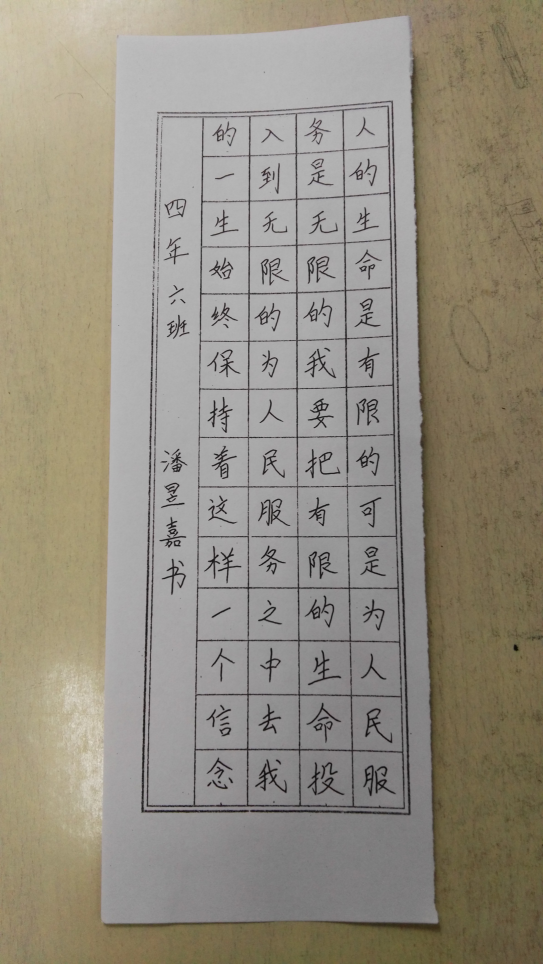 人的生命是有限的可是为人民服
务是无限的我要把有限的生命投
入到无限的为人民服务之中去我
的一生始终保持着这样一个信念
四年六班 潘昱嘉书